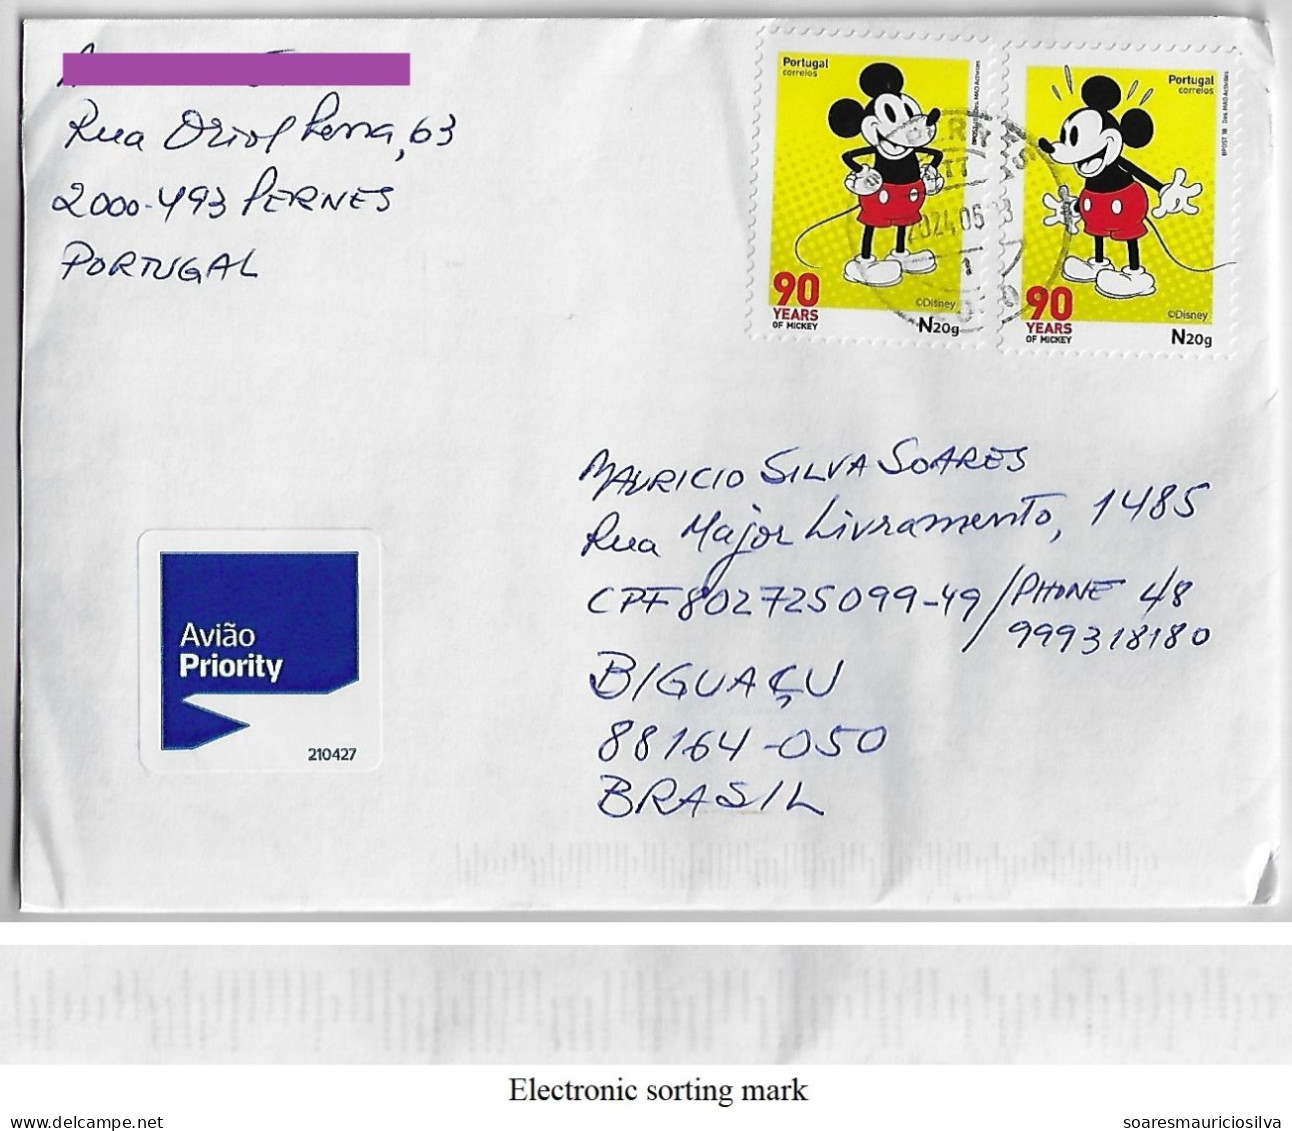 Rua Oriol Pena, 63
2000-493 PERNES
PORTUGAL
Portugal
correios
90
YEARS
OF MICKEY
©Disney
N20g
Portugal
correios
90
YEARS
OF MICKEY
©Disney
N20g
PERNES
2024.06
MAURICIO SILVA SOARES
Rua Major Livramento, 1485
CPF 802725099-49/PHONE 48
999318180
BIGUAÇU
88164-050
BRASIL
Avião
Priority
210427
Electronic sorting mark
delcampe.net
soaresmauriciosilva